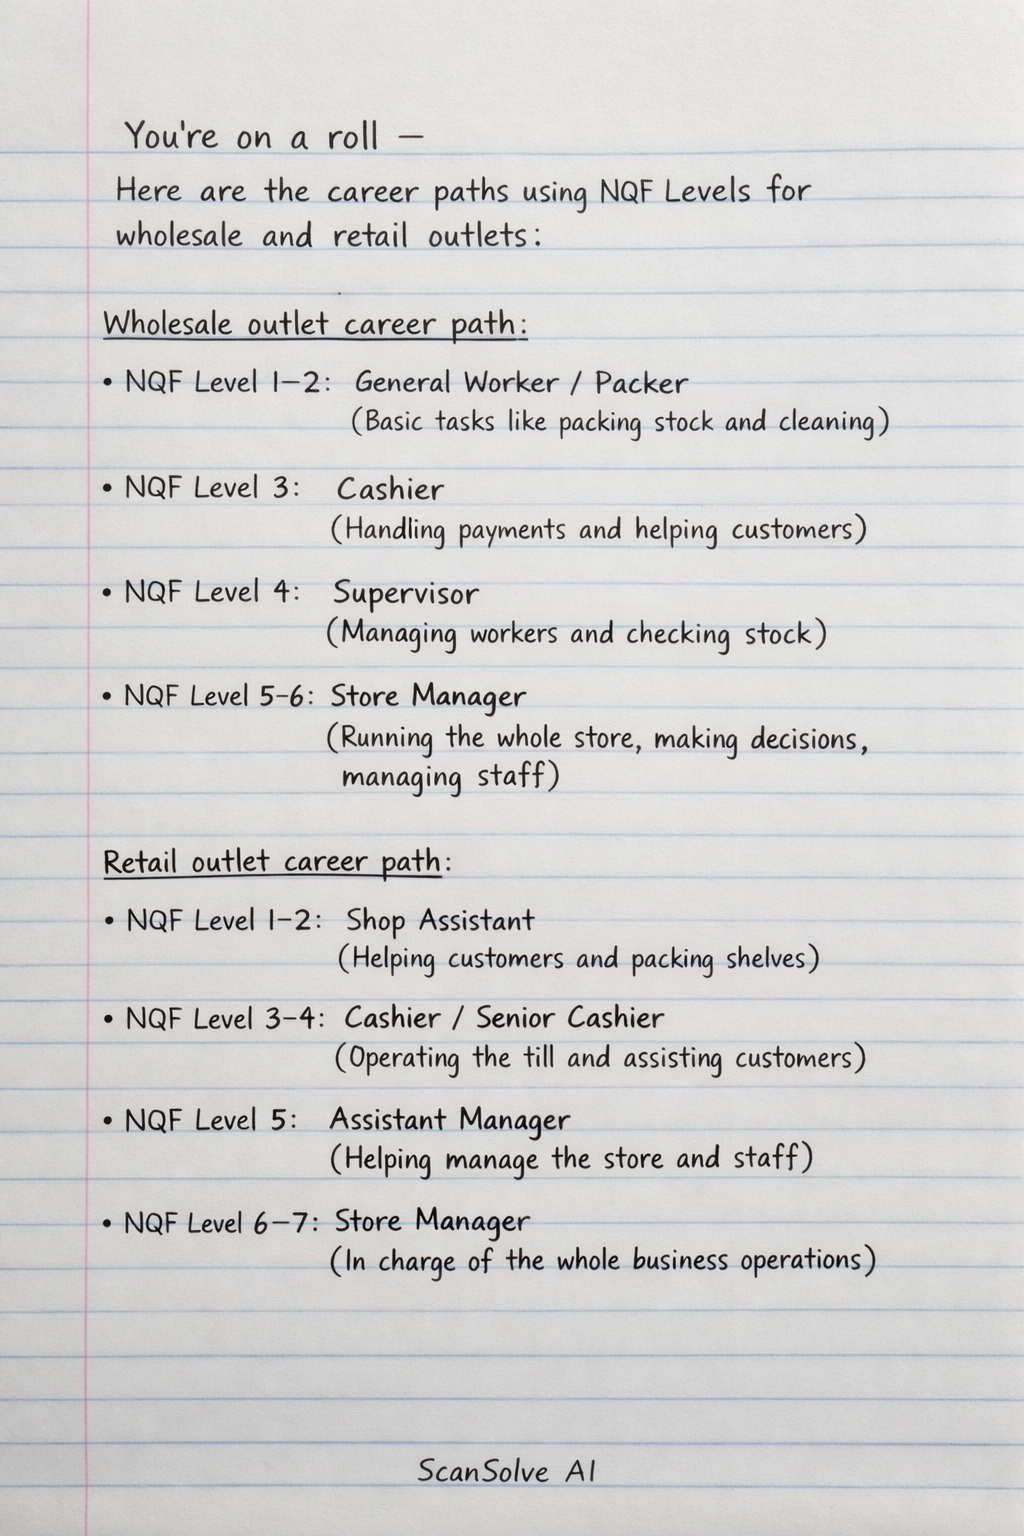 You're on a roll —
Here are the career paths using NQF Levels for
wholesale and retail outlets:
Wholesale outlet career path:
• NQF Level 1–2: General Worker / Packer
(Basic tasks like packing stock and cleaning)
• NQF Level 3: Cashier
(Handling payments and helping customers)
• NQF Level 4: Supervisor
(Managing workers and checking stock)
• NQF Level 5-6: Store Manager
(Running the whole store, making decisions,
managing staff)
Retail outlet career path:
• NQF Level 1–2: Shop Assistant
(Helping customers and packing shelves)
• NQF Level 3–4: Cashier / Senior Cashier
(Operating the till and assisting customers)
• NQF Level 5: Assistant Manager
(Helping manage the store and staff)
• NQF Level 6–7: Store Manager
(In charge of the whole business operations)
ScanSolve AI